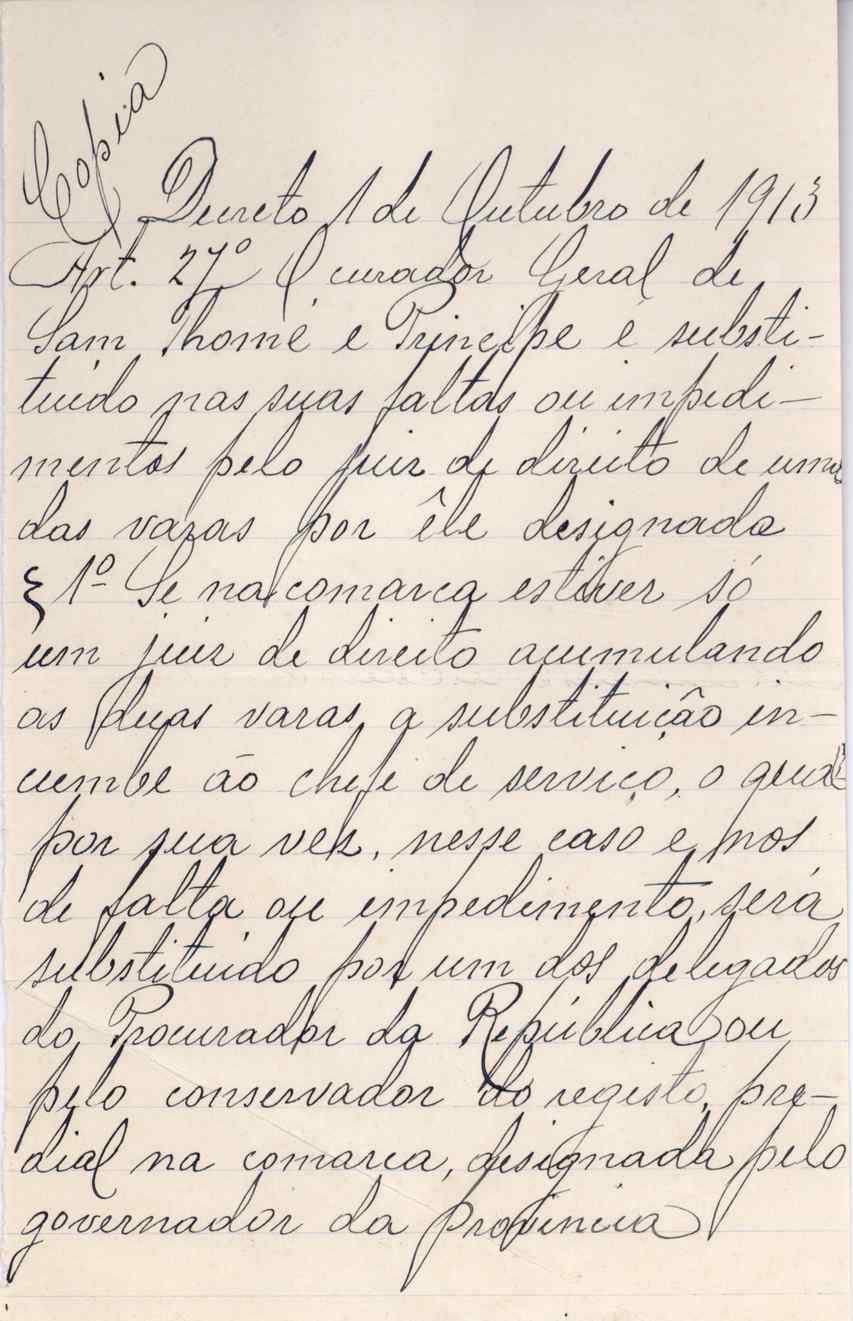 Copia
Decreto 1 de Outubro de 1913
Art. 27º O curador Geral de
Sam Thomé e Principe é substi-
tuido nas suas faltas ou impedi-
mentos pelo juiz de direito de uma
das varas por êle designada
§ 1º Se na comarca estiver só
um juiz de direito acumulando
as duas varas, a substituição in-
cumbe ão chefe de serviço, o qual
por sua vez, nesse caso e nos
de falta ou impedimento, será
substituido por um dos delegados
do Procurador da República ou
pelo conservador do registo pre-
dial na comarca, designada pelo
governador da provincia